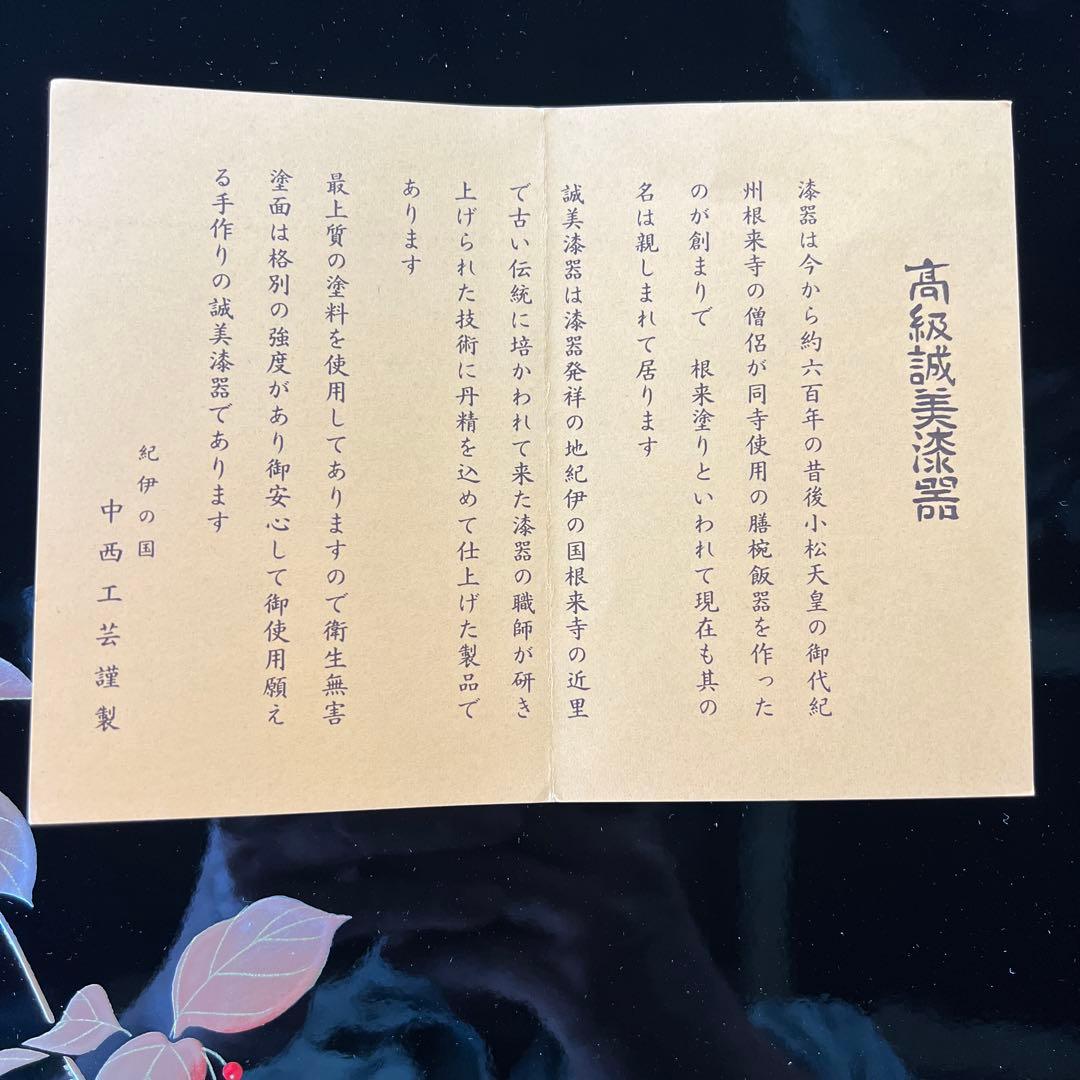 高級誠美漆器
漆器は今から約六百年の昔後小松天皇の御代紀
州根来寺の僧侶が同寺使用の膳椀飯器を作った
のが創まりで　根来塗りといわれて現在も其の
名は親しまれて居ります
誠美漆器は漆器発祥の地紀伊の国根来寺の近里
で古い伝統に培かわれて来た漆器の職師が研き
上げられた技術に丹精を込めて仕上げた製品で
あります
最上質の塗料を使用してありますので衛生無害
塗面は格別の強度があり御安心して御使用願え
る手作りの誠美漆器であります
紀伊の国
中西工芸謹製